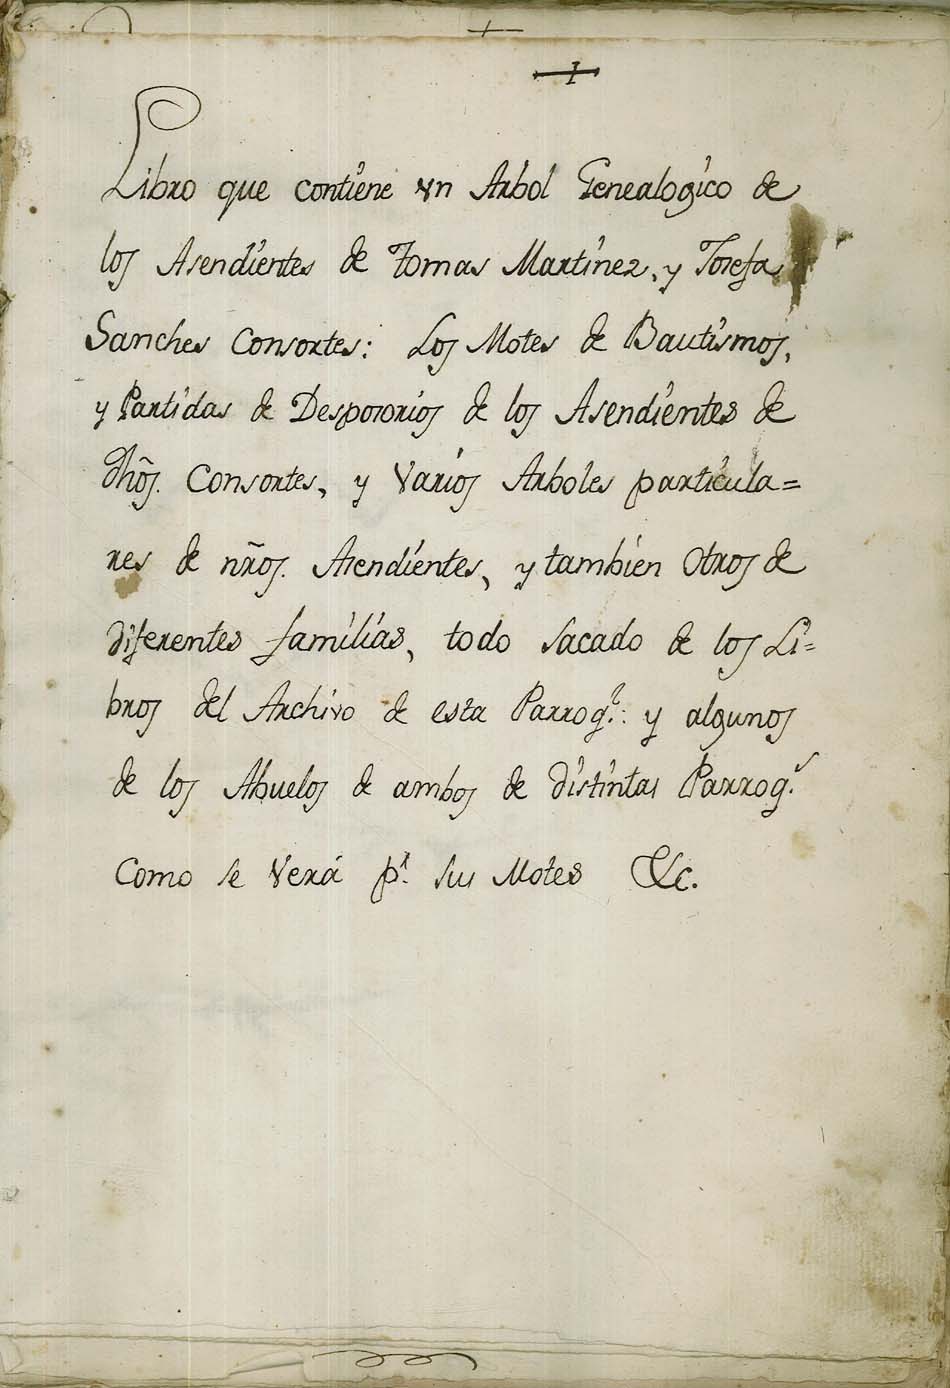 Libro que contiene vn Arbol Genealogico de
los Asendientes de Tomas Martinez, y Josefa
Sanches Consortes: Los Motes de Bautismos,
y Partidas de Desposorios de los Asendientes de
dhõs. Consortes, y Varios Arboles particula=
res de nr̃os. Asendientes, y tambien Otros de
diferentes familias, todo sacado de los Li=
bros del Archivo de esta Parroq.ª: y algunos
de los Abuelos de ambos de distintas Parroq.s
Como se Verá p.r sus Motes &c.